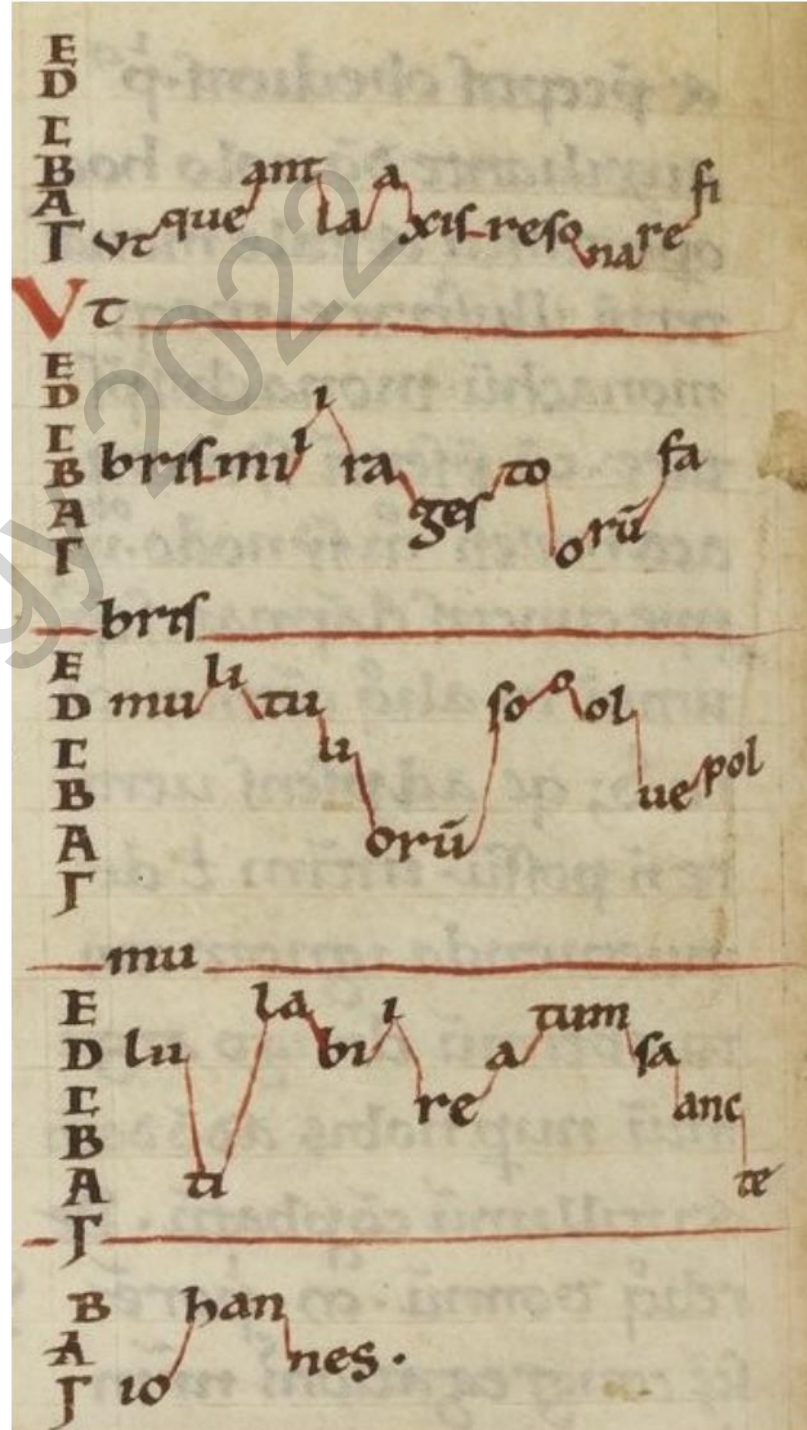 E
D
C
B
A
Γ
vt que ant la a xis reso na re fi
Vt
E
D
C
B
A
Γ
bris mi i i ra ges to o rū fa
bris
E
D
C
B
A
Γ
mu li tu u orū so o ol ue pol
mu
E
D
C
B
A
Γ
lu ti la bi i re a tum sa anc te
B
A
Γ
io han nes.
gy 2022